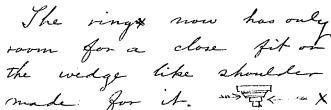 The ring now has only
room for a close fit on
the wedge like shoulder
made for it. x